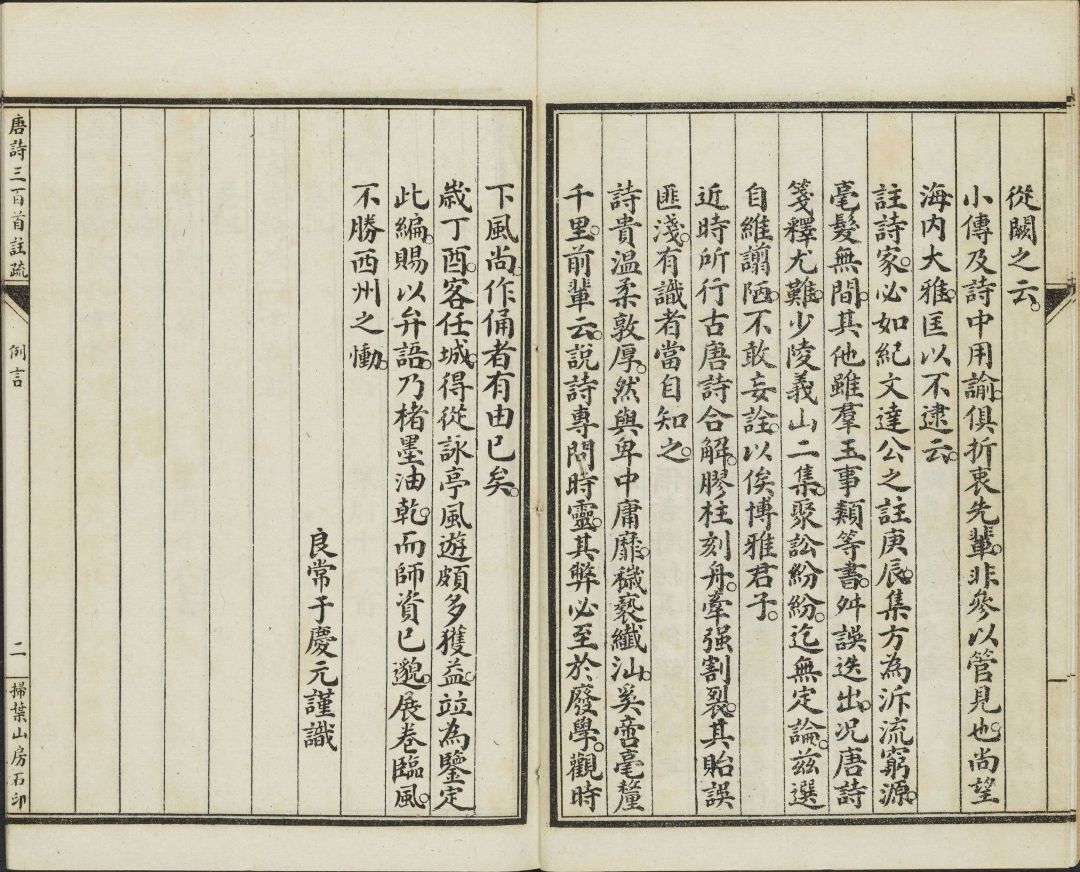 從闕之云。
小傳及詩中用諭。俱折衷先輩。非參以管見也。尚望
海内大雅。匡以不逮云。
註詩家。必如紀文達公之註庚辰集。方為泝流窮源。
毫髮無間。其他雖羣玉事類等書。舛誤迭出。况唐詩
箋釋尤難。少陵義山二集。聚訟紛紛。迄無定論。茲選
自維譾陋。不敢妄詮。以俟博雅君子。
近時所行古唐詩合解。膠柱刻舟。牽强割裂。其貽誤
匪淺。有識者當自知之。
詩貴温柔敦厚。然與卑中庸靡。穢褻纖汕。奚啻毫釐
千里。前輩云。説詩專問時靈。其弊必至於廢學。觀時
下風尚。作俑者有由已矣。
歲丁酉。客任城。得從詠亭風遊。頗多獲益。竝為鑒定
此編。賜以弁語。乃楮墨油乾。而師資已邈。展卷臨風。
不勝西州之慟。
良常于慶元謹識
唐詩三百首註疏
例言
二
掃葉山房石印